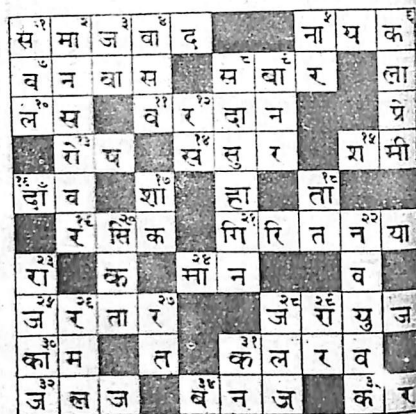 स१ मा२ ज३ वा४ द ना५ य क६
व७ न वा स स८ वा९ र ला
लं१० स व११ र१२ दा न प्रे
रो१३ ष स१४ सु र श१५ मी
दाँ१६ व शा१७ हा ता१८
र१९ सि२० क गि२१ रि त न२२ या
रा२३ क मा२४ न व
ज२५ र२६ ता र२७ ज२८ रा२९ यु ज
का३० म त क३१ ल र व
ज३२ ल ज ब न ज क र